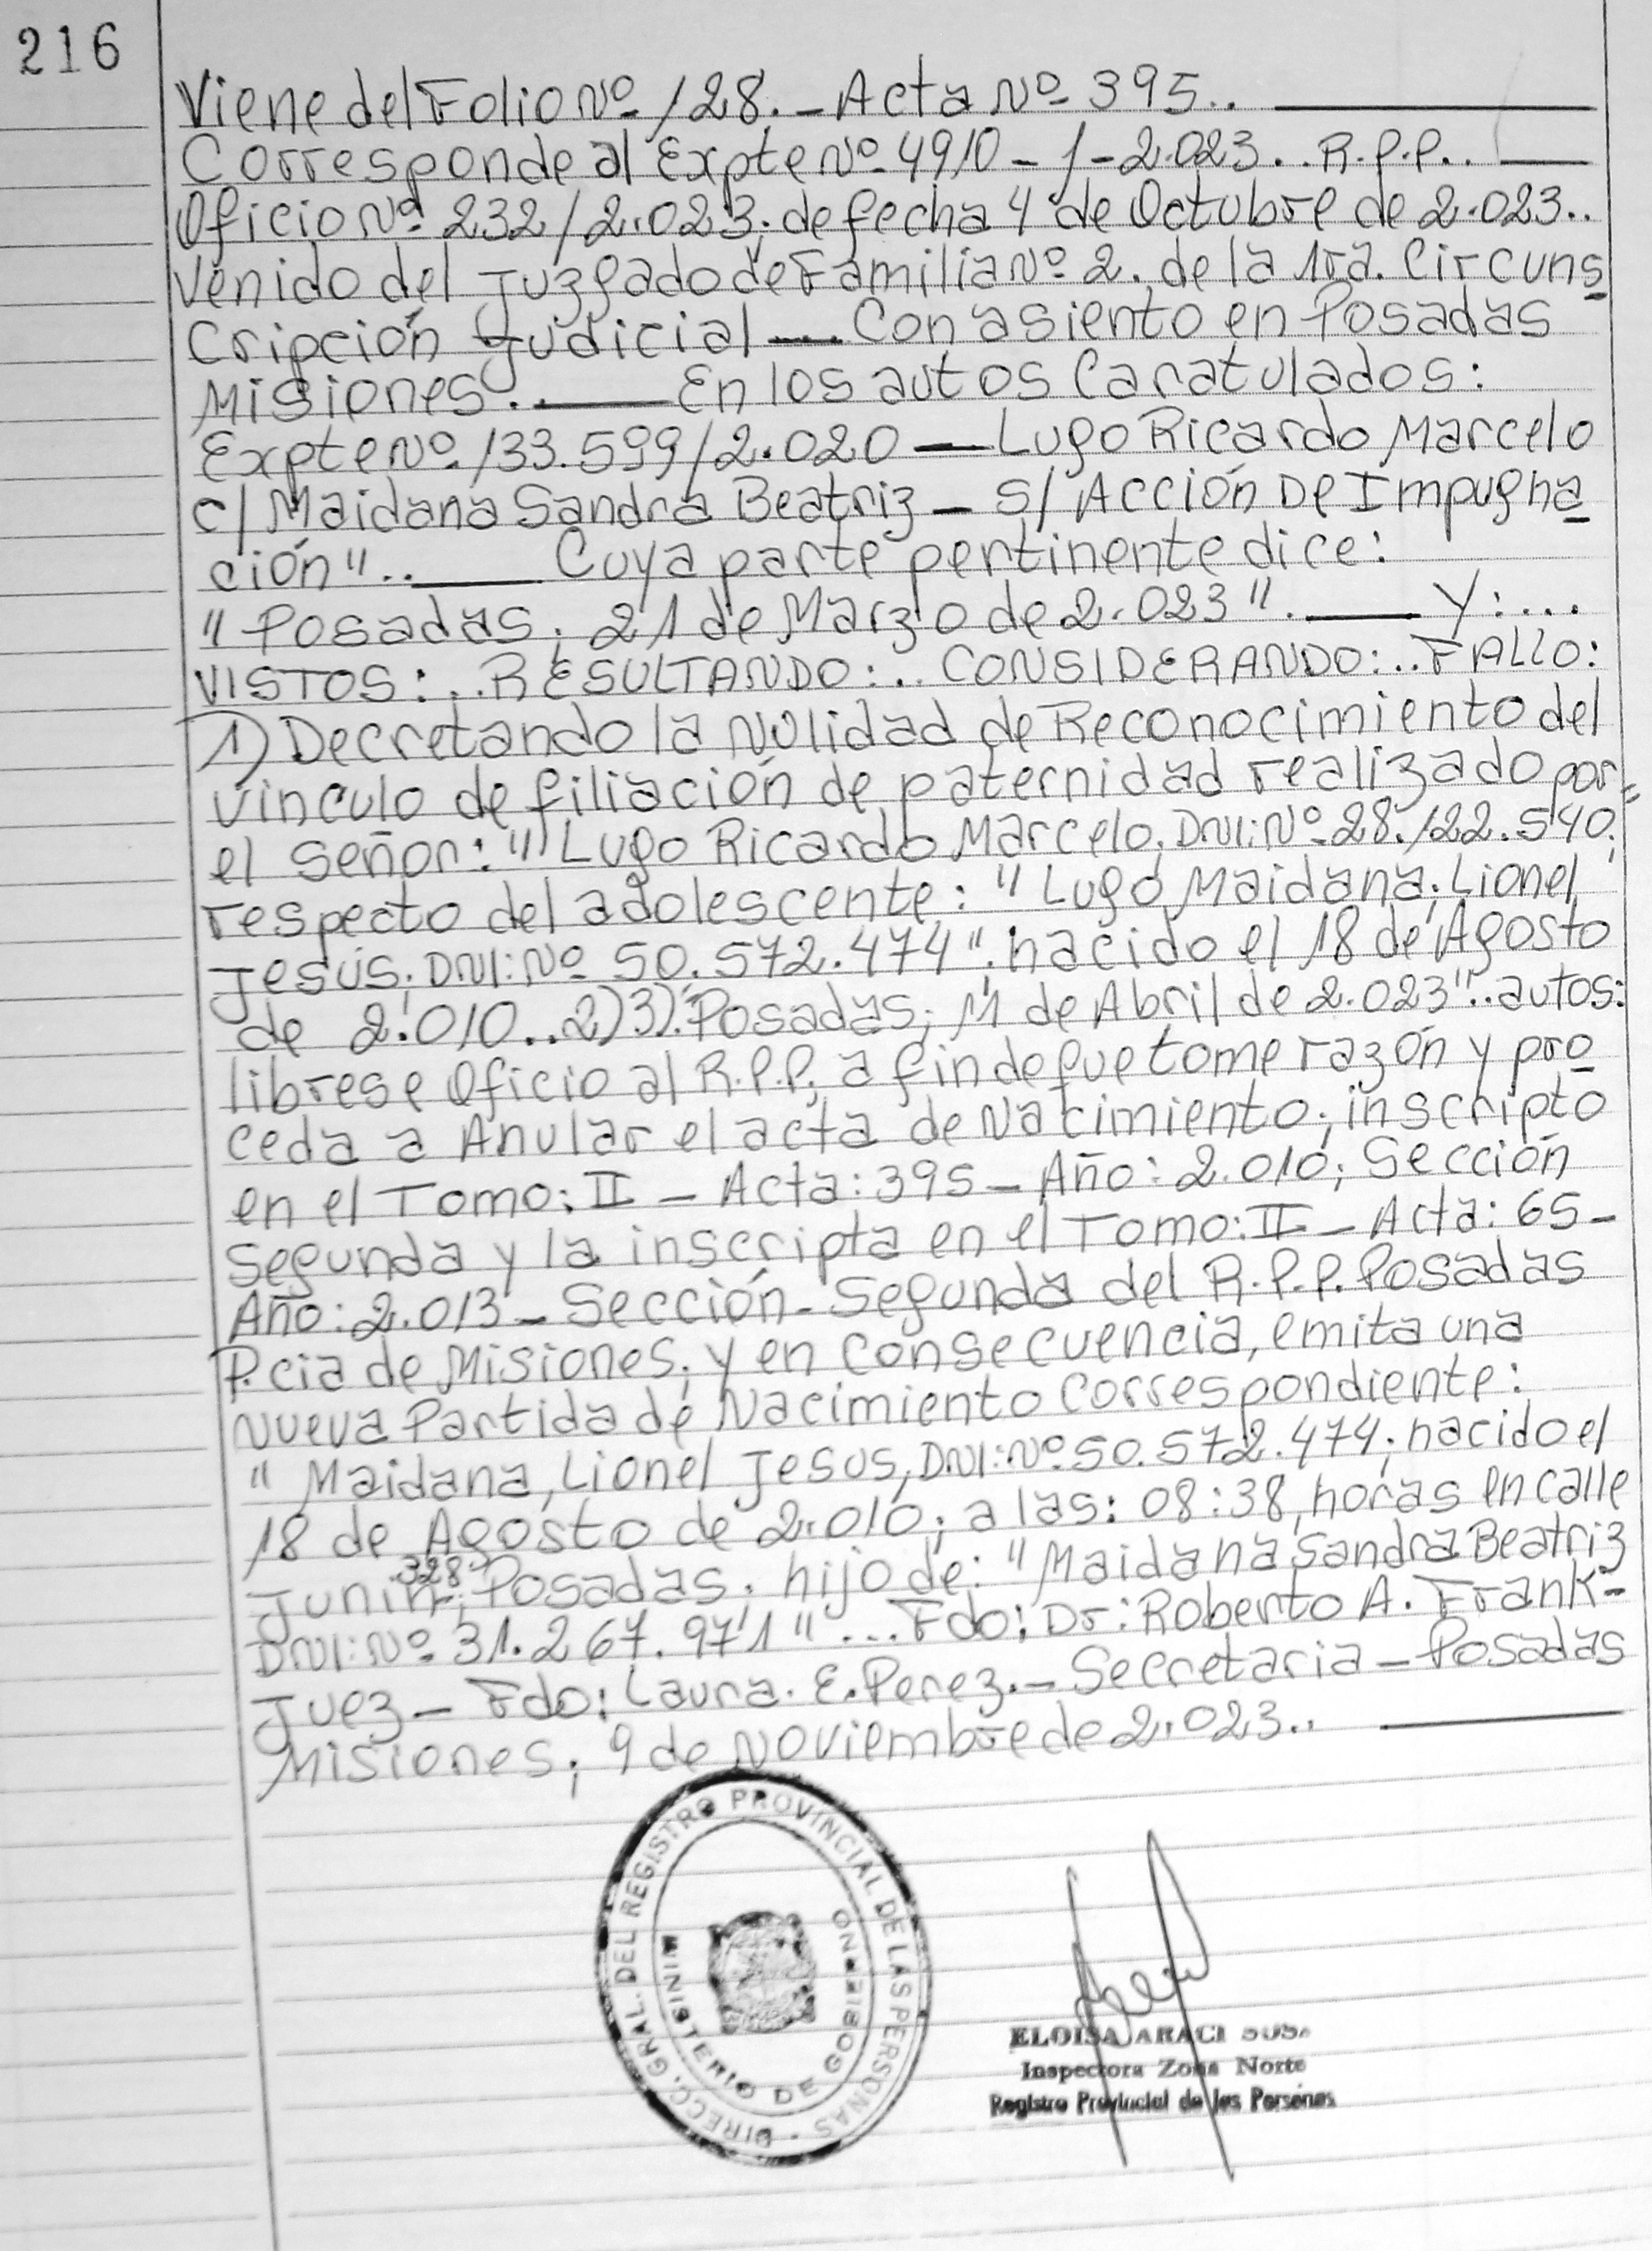 216
Viene del Folio Nº 128.- Acta Nº 395..
Corresponde al Expte Nº 4910 - 1 - 2.023.. R.P.P..
Oficio Nº 232/2.023; de fecha 4 de Octubre de 2.023..
Venido del Juzgado de Familia Nº 2, de la 1ra. Circuns
cripción Judicial — Con asiento en Posadas
Misiones.. — En los autos Caratulados:
Expte Nº 133.599/2.020 — Lugo Ricardo Marcelo
c/ Maidana Sandra Beatriz — S/ Acción De Impugna
ción".. — Cuya parte pertinente dice:
"Posadas, 21 de Marzo de 2.023". — Y:...
VISTOS:.. RESULTANDO:.. CONSIDERANDO:.. FALLO:
1) Decretando la Nulidad de Reconocimiento del
vinculo de filiación de paternidad realizado por=
el señor: "Lugo Ricardo Marcelo, DNI: Nº 28.122.540;
respecto del adolescente: "Lugo Maidana; Lionel
Jesús; DNI: Nº 50.572.474". nacido el 18 de Agosto
de 2.010.. 2) 3). Posadas; 11 de Abril de 2.023".. autos:
librese Oficio al R.P.P; a fin de que tome razón y pro
ceda a Anular el acta de Nacimiento; inscripto
en el Tomo: II - Acta: 395 - Año: 2.010; Sección
Segunda y la inscripta en el Tomo: II - Acta: 65 -
Año: 2.013 - Sección - Segunda del R.P.P. Posadas
P.cia de Misiones; y en Consecuencia, emita una
Nueva Partida de Nacimiento Correspondiente:
"Maidana, Lionel Jesus, DNI: Nº 50.572.474; nacido el
18 de Agosto de 2.010; a las: 08:38, horas en calle
Junin; 328" Posadas. hijo de: "Maidana Sandra Beatriz
DNI: Nº 31.267.971"... Fdo: Dr: Roberto A. Frank=
Juez - Fdo: Laura. E. Perez.- Secretaria - Posadas
Misiones; 9 de Noviembre de 2.023..
DIRECC. GRAL. DEL REGISTRO PROVINCIAL DE LAS PERSONAS
MINISTERIO DE GOBIERNO
ELOISA ARACI SOSA
Inspectora Zona Norte
Registro Provincial de las Personas